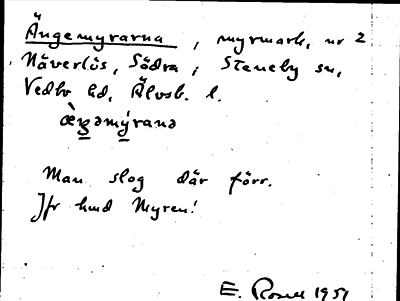 Ängemyrarna, myrmark, nr 2
Näverlös, Södra, Steneby sn,
Vedbo hd, Älvsb. l.
Man slog där förr.
Jfr hmd Myren!
E. Rosell 1951